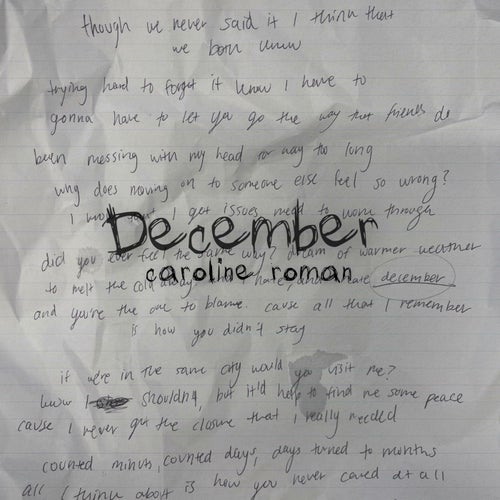 though we never said it I think that
we both knew
trying hard to forget it know I have to
gonna have to let you go the way that friends do
been messing with my head for way too long
why does moving on to someone else feel so wrong?
I know I got issues need to work through
December
did you ever feel the same way? dream of warmer weather
caroline roman
to melt the cold away hate december
and you're the one to blame. cause all that I remember
is how you didn't stay
if we're in the same city would you visit me?
know I shouldn't, but it'd help to find me some peace
cause I never got the closure that I really needed
counted minutes, counted days, days turned to months
all I think about is how you never cared at all